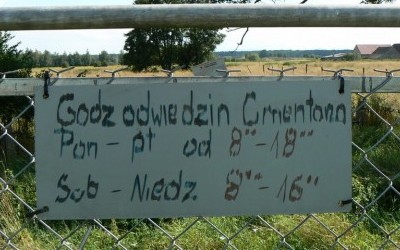 Godz odwiedzin Cmentarza
Pon - pt od 8°° - 18°°
Sob - Niedz. 8°° - 16°°